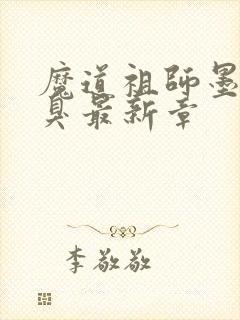 魔道祖师墨
臭最新章
李敬敬